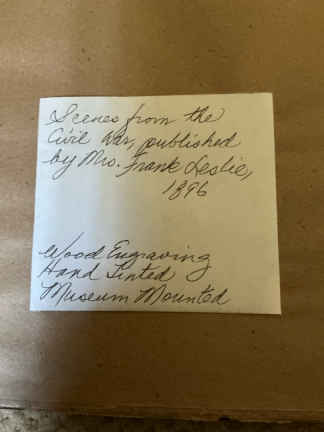 Scenes from the
Civil War, published
by Mrs. Frank Leslie,
1896
Wood Engraving
Hand Tinted
Museum Mounted